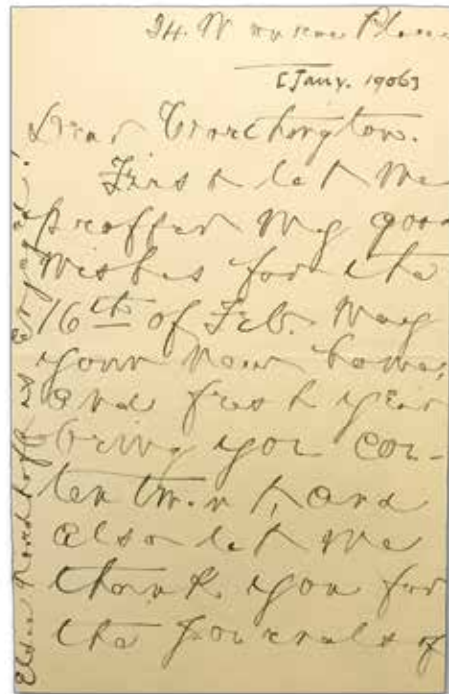 24.
[Jany. 1906]
Dear Worthington.
First let me
proffer my good
wishes for the
16th of Feb. May
your new home,
and fresh year
bring you con-
tentment, and
also let me
thank you for
the journals of
is engaged!